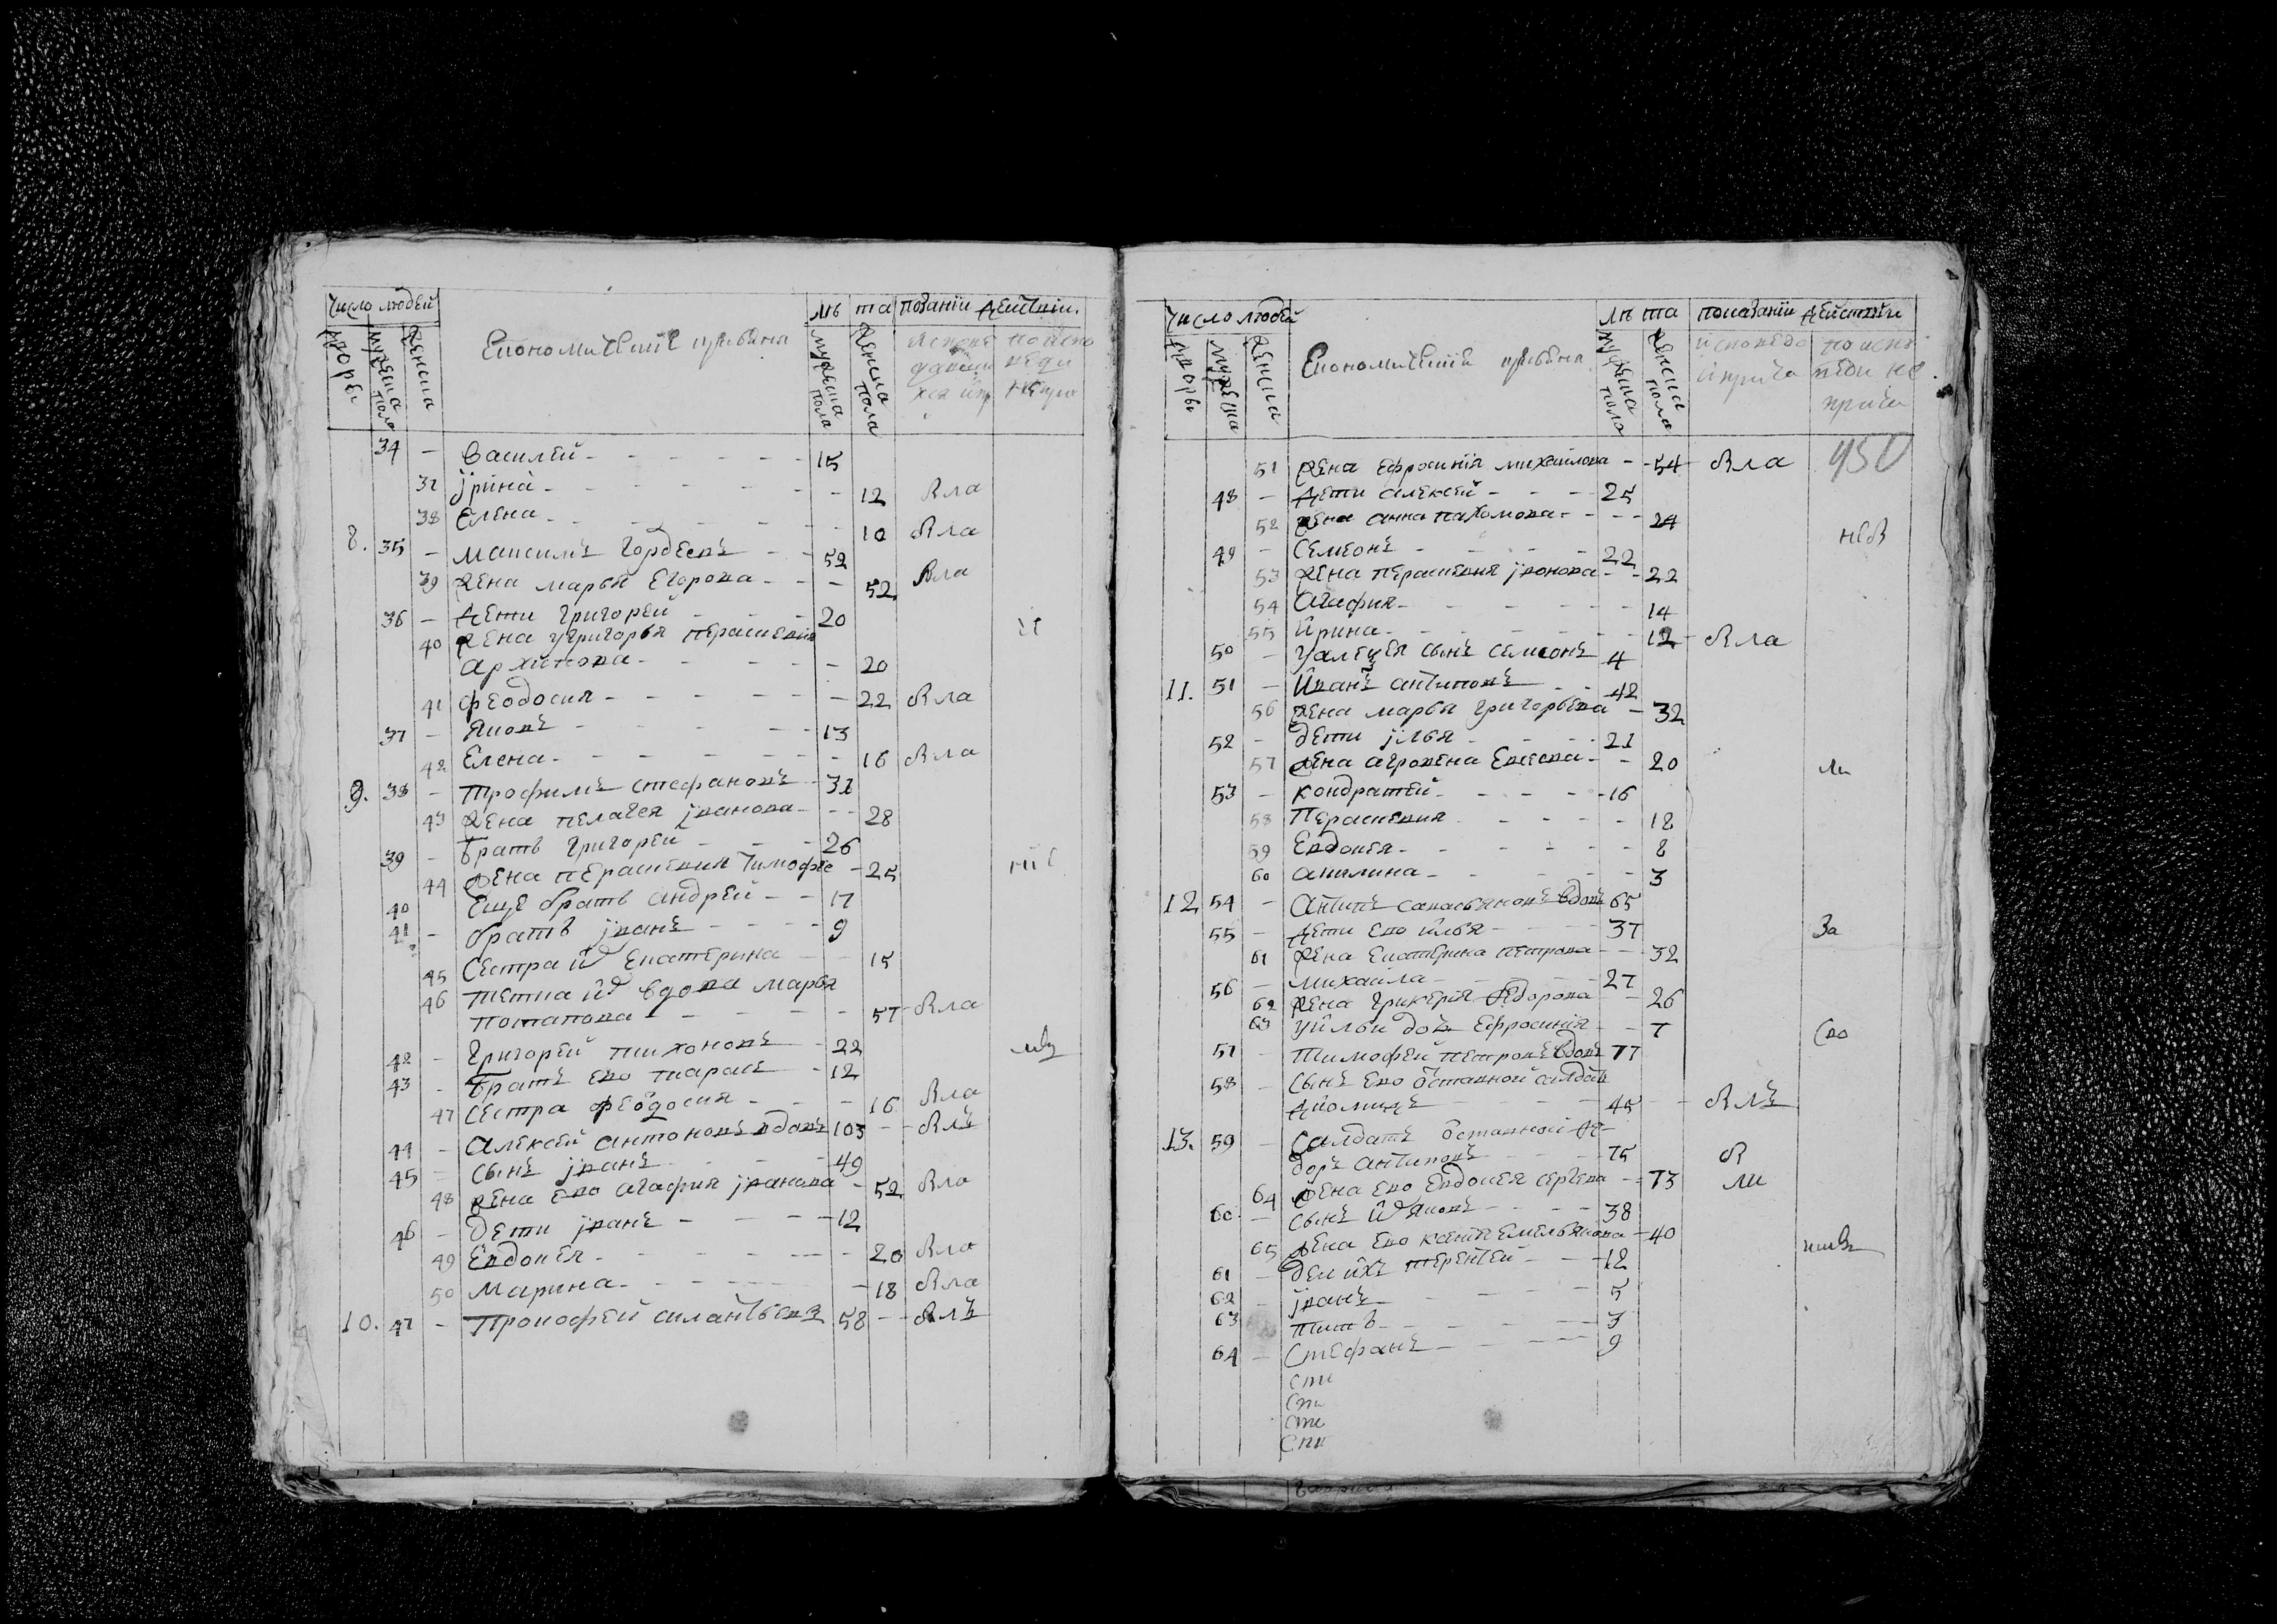 Число людей
лѣ та
показании действии
дворы
мужеска пола
женска
Економические крестьяне
мужеска пола
женска пола
34 - Василей - 15
37 Ирина - 12 Яла
38 Елена - 10 Яла
8. 35 - Максимъ Гордеевъ - 52
39 жена Марья Егорова - 52 Яла
36 - дети Григорей - 20
40 жена у Григорья Перасковия
Архипова - 20
41 Феодосия - 22 Яла
37 - Яковъ - 13
42 Елена - 16 Яла
9. 38 - Трофимъ Стефановъ - 31
43 жена Пелагея Іванова - 28
39 - братъ Григорей - 26
44 жена Перасковия Тимофее - 25
40 Еще братъ Андрей - 17
41 - братъ Іванъ - 9
45 Сестра их Екатерина - 15
46 тетка их вдова Марья
Потапова - 57 Яла
42 - Григорей Тихоновъ - 22
43 - братъ ево Тарасъ - 12
47 Сестра Феодосия - 16 Яла
44 - Алексей Антоновъ вдовъ 103 - Ялъ
45 - Сынъ Іванъ - 49
48 жена ево Агафия Іванова - 52 Яла
46 - Дети Іванъ - 12
49 Евдокея - 20 Яла
50 Марина - 18 Яла
10. 47 - Прокофей Силантьевъ 58 - Ялъ
Число людей
лѣ та
показании действии
дворы
мужеска
женска
Економические крестьяне
мужеска пола
женска пола
450
51 жена Ефросиния Михайлова - 54 Яла
48 - дети Алексей - 25
52 жена Анна Пахомова - 24
49 - Семеонъ - 22
53 жена Перасковия Іванова - 22
54 Агафия - 14
55 Ирина - 12 - Яла
50 - У Алексея сынъ Семионъ 4
11. 51 - Иванъ Антиповъ - 42
56 жена Марья Григорьева - 32
52 - дети Ілья - 21
57 жена Аграфена Евсеева - 20
53 - Кондратей - 16
58 Перасковия - 12
59 Евдокея - 8
60 Акилина - 3
12 54 - Антипъ Савастьяновъ вдовъ 65
55 - дети ево Илья - 37
61 жена Екатерина Петрова - 32
56 - Михаила - 27
62 жена Гликерия Федорова - 26
63 У Ильи дочь Ефросиния - 7
57 - Тимофей Петровъ вдовъ 77
58 - Сынъ ево отставной салдатъ
Диомидъ - 45 - Ялъ
13. 59 - Салдатъ отставной Фе-
доръ Антиповъ - 75
64 жена ево Евдокея Сергеева - 73
60 - сынъ их Яковъ - 38
65 жена ево Катит Емельянова - 40
61 - дети ихъ Терентей - 12
62 - Іванъ - 5
63 Титъ - 3
64 - Стефанъ - 9